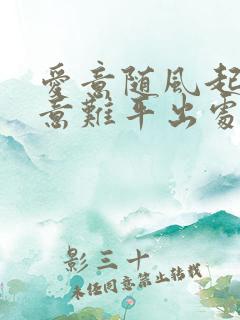 愛意随風起
意難平出處
影三十
未经同意禁止转载